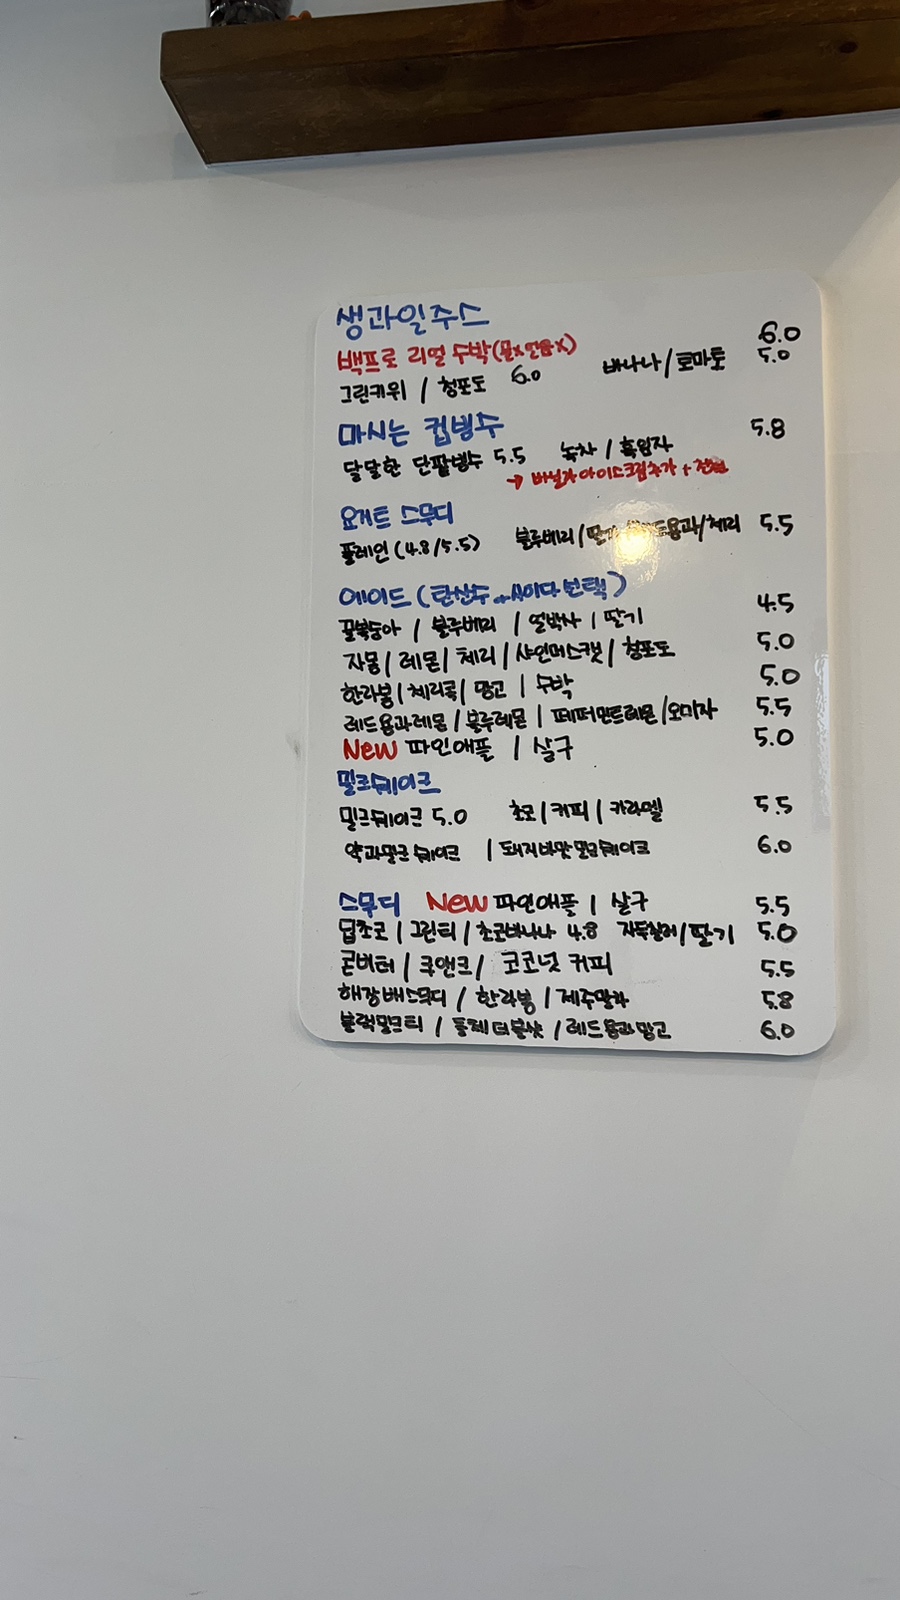 생과일주스
백프로 리얼 수박(물x얼음x) 6.0
그린키위 / 청포도 6.0 바나나/토마토 5.0
마시는 컵빙수
달달한 단팥빙수 5.5 녹차 / 흑임자 5.8
→ 바닐라아이스크림추가 + 천원
요거트 스무디
플레인 (4.8/5.5) 블루베리/딸기 레드용과/체리 5.5
에이드 (탄산수 or 사이다 선택)
꿀복숭아 / 블루베리 / 얼박사 / 딸기 4.5
자몽 / 레몬 / 체리 / 샤인머스캣 / 청포도 5.0
한라봉 / 체리콕 / 망고 / 수박 5.0
레드용과레몬 / 블루레몬 / 페퍼민트레몬 / 오미자 5.5
New 파인애플 / 살구 5.0
밀크쉐이크
밀크쉐이크 5.0 초코 / 커피 / 카라멜 5.5
약과밀크쉐이크 / 돼지바맛 밀크쉐이크 6.0
스무디 New 파인애플 / 살구 5.5
딥초코 / 그린티 / 초코바나나 4.8 자두살러/딸기 5.0
곤버터 / 쿠앤크 / 코코넛 커피 5.5
해장배스무디 / 한라봉 / 제주말차 5.8
블랙밀크티 / 돌체 더블샷 / 레드용과망고 6.0